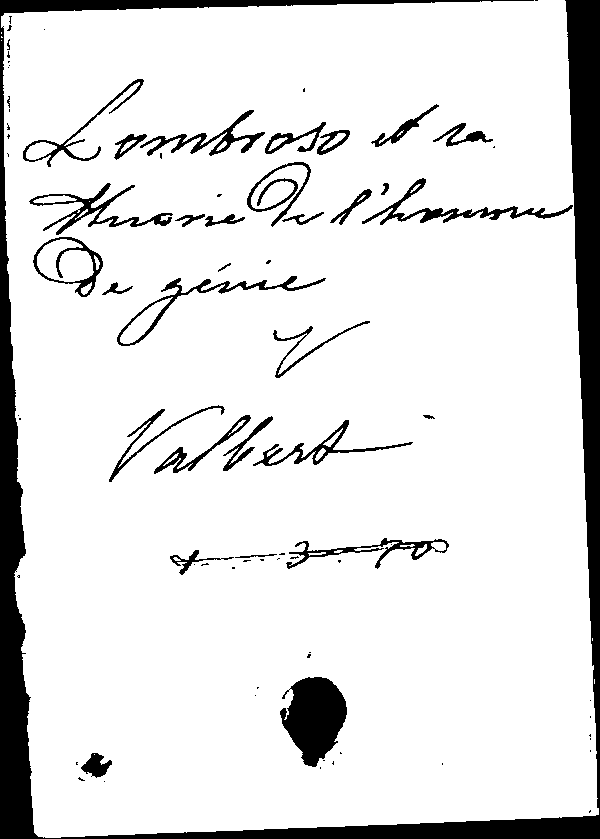 Lombroso et sa
théorie de l'homme
de génie
V
Valbert
+ 3 - 70